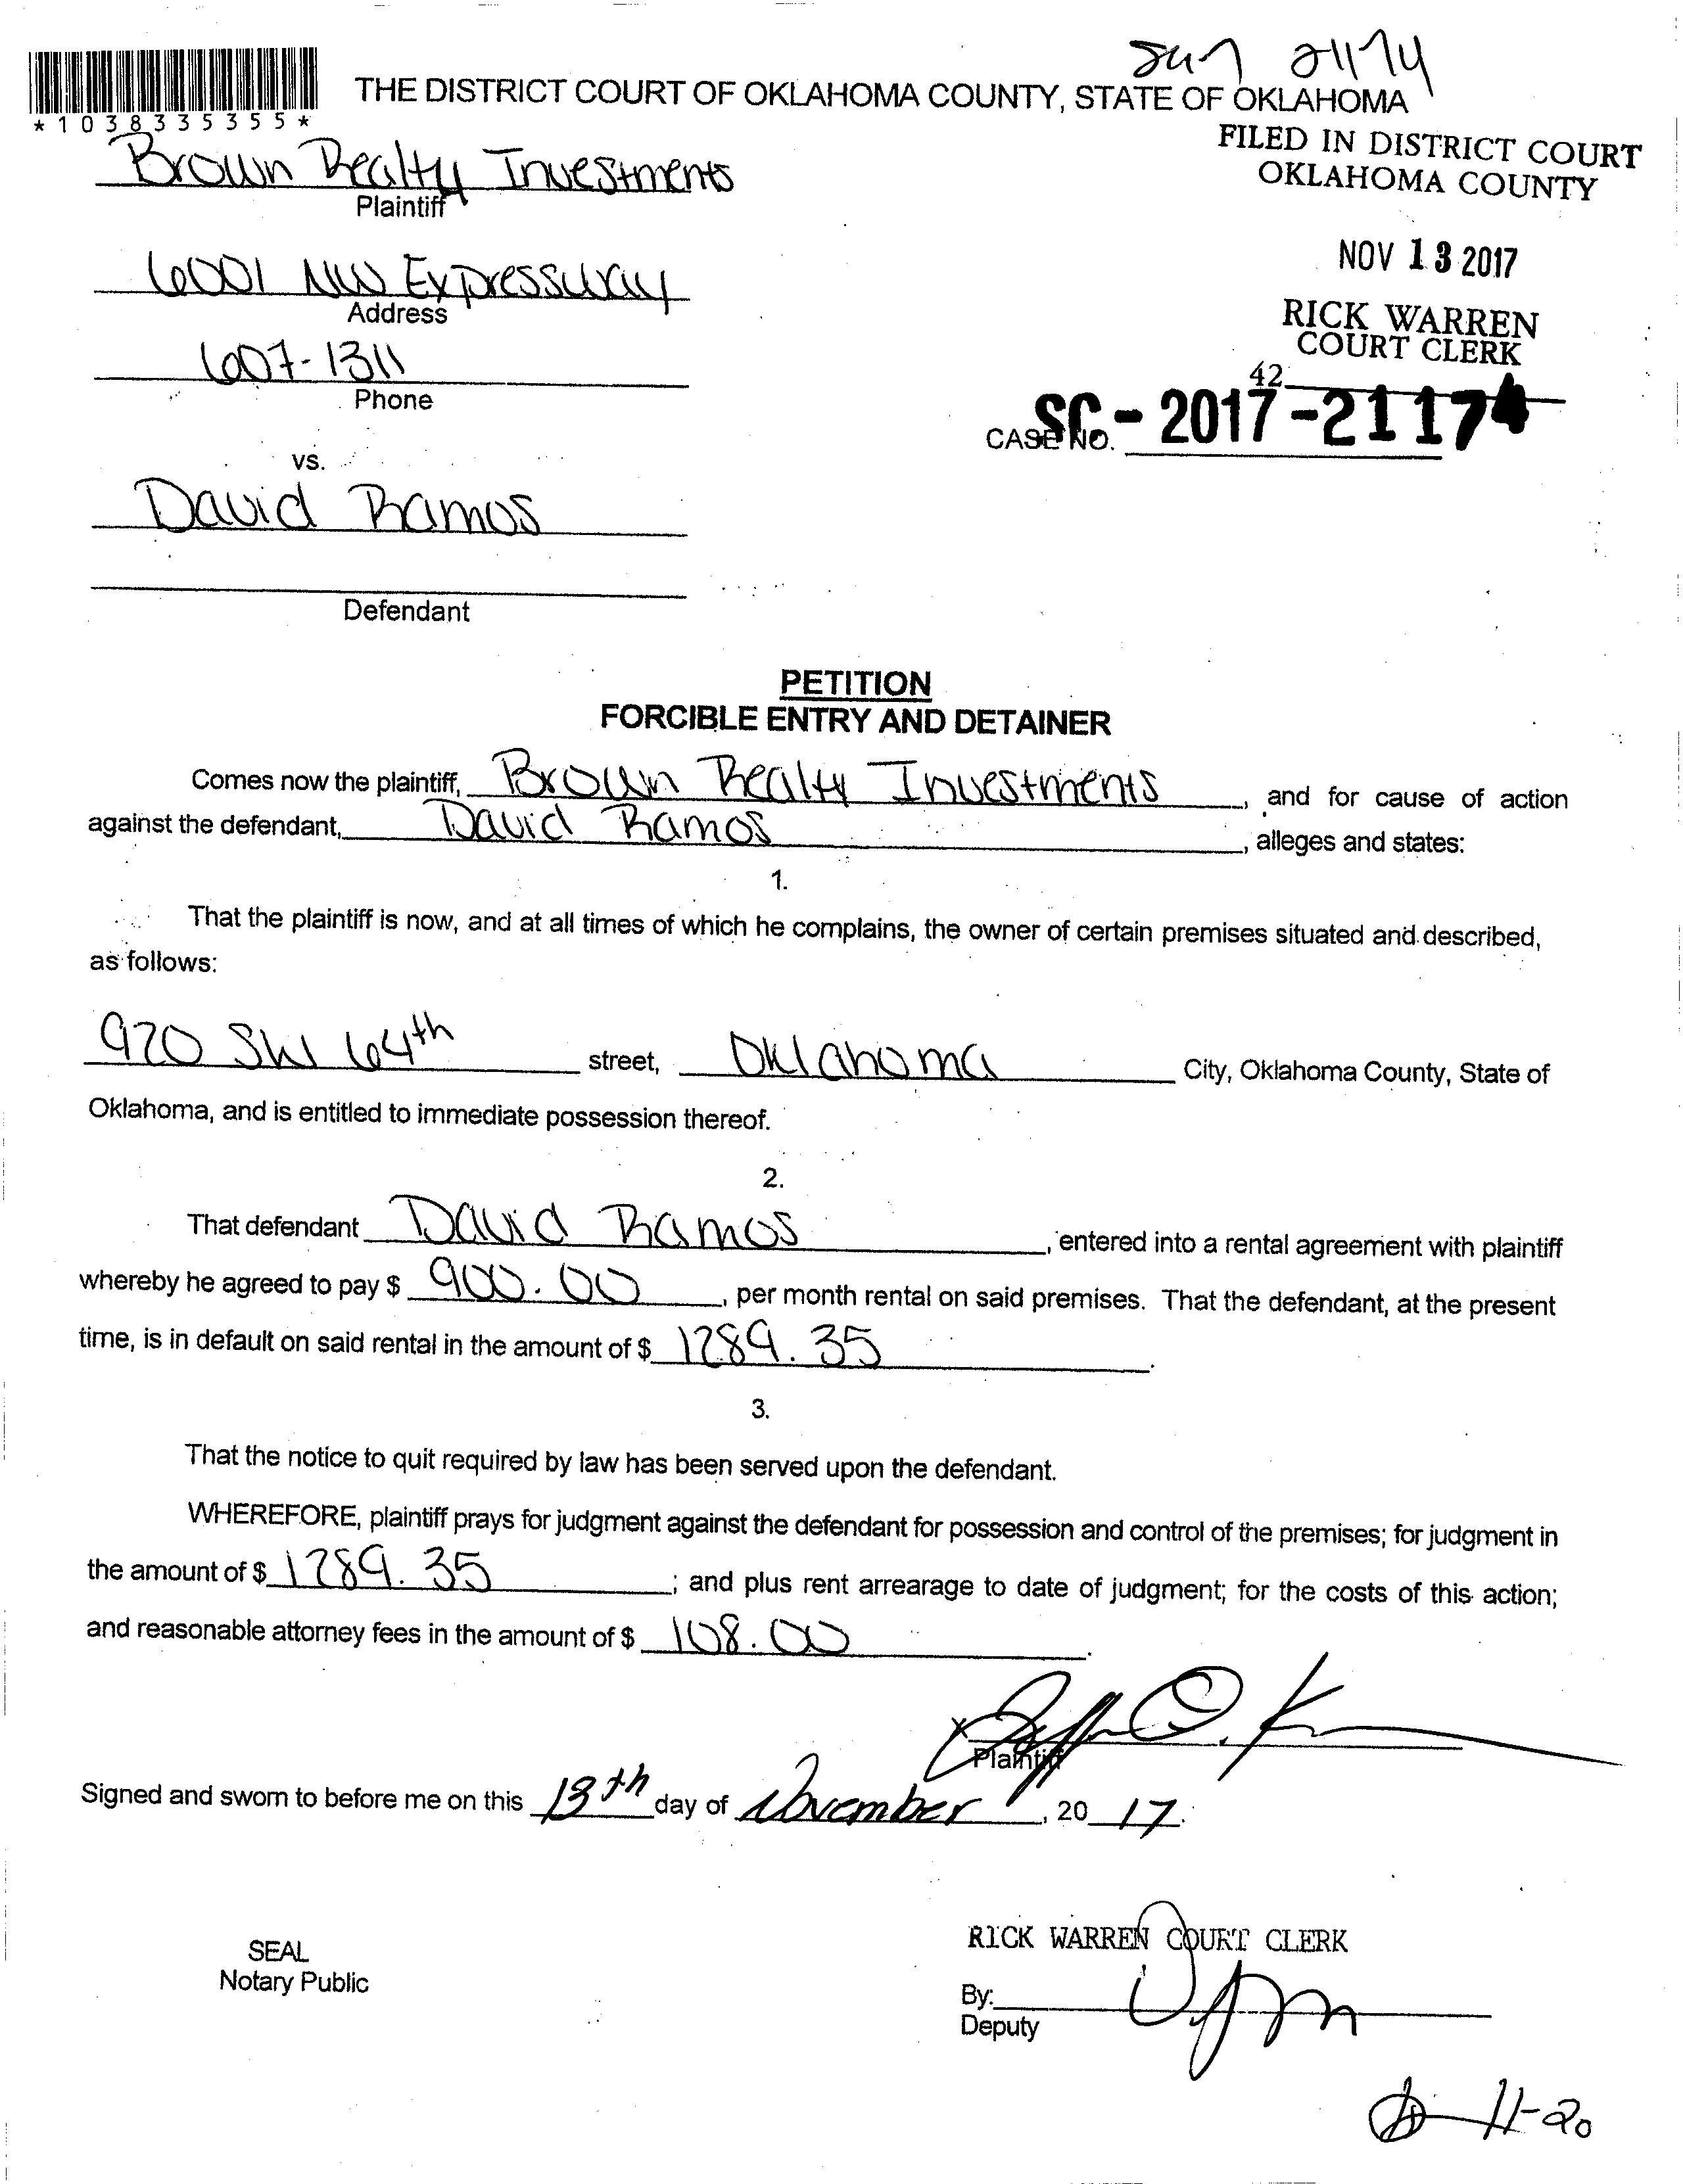 THE DISTRICT COURT OF OKLAHOMA COUNTY, STATE OF OKLAHOMA
*1038335355*
FILED IN DISTRICT COURT
OKLAHOMA COUNTY
Brown Realty Investments
Plaintiff
NOV 13 2017
6001 NW Expressway
Address
RICK WARREN
COURT CLERK
607-1311
Phone
42
CASE NO. SC-2017-21174
vs.
David Ramos
Defendant
PETITION
FORCIBLE ENTRY AND DETAINER
Comes now the plaintiff, Brown Realty Investments, and for cause of action
against the defendant, David Ramos, alleges and states:
1.
That the plaintiff is now, and at all times of which he complains, the owner of certain premises situated and described,
as follows:
920 SW 64th street, Oklahoma City, Oklahoma County, State of
Oklahoma, and is entitled to immediate possession thereof.
2.
That defendant David Ramos, entered into a rental agreement with plaintiff
whereby he agreed to pay $ 900.00, per month rental on said premises. That the defendant, at the present
time, is in default on said rental in the amount of $ 1289.35.
3.
That the notice to quit required by law has been served upon the defendant.
WHEREFORE, plaintiff prays for judgment against the defendant for possession and control of the premises; for judgment in
the amount of $ 1289.35; and plus rent arrearage to date of judgment; for the costs of this action;
and reasonable attorney fees in the amount of $ 108.00.
X
Plaintiff
Signed and sworn to before me on this 13th day of November, 20 17.
RICK WARREN COURT CLERK
SEAL
Notary Public
By:
Deputy
11-20